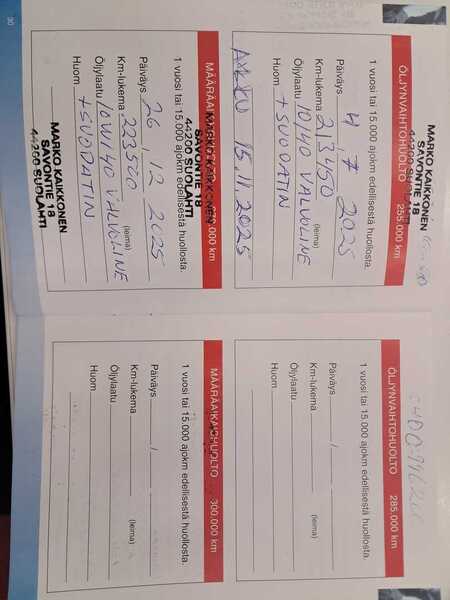 MARKO KAIKKONEN
SAVONTIE 18
44200 SUOLAHTI
ÖLJYNVAIHTOHUOLTO 255.000 km
1 vuosi tai 15.000 ajokm edellisestä huollosta.
Päiväys 4 / 7 2025
Km-lukema 213450
(leima)
Öljylaatu 10/40 VALVOLINE
Huom +SUODATIN
15.11.2025
MÄÄRÄAIKAISHUOLTO 270.000 km
MARKO KAIKKONEN
SAVONTIE 18
44200 SUOLAHTI
1 vuosi tai 15.000 ajokm edellisestä huollosta.
Päiväys 26 / 12 2025
Km-lukema 223500
(leima)
Öljylaatu 10W/40 VALVOLINE
Huom +SUODATIN
MARKO KAIKKONEN
SAVONTIE 18
44200 SUOLAHTI
30
ÖLJYNVAIHTOHUOLTO 285.000 km
1 vuosi tai 15.000 ajokm edellisestä huollosta.
Päiväys /
Km-lukema
(leima)
Öljylaatu
Huom
MÄÄRÄAIKAISHUOLTO 300.000 km
1 vuosi tai 15.000 ajokm edellisestä huollosta.
Päiväys /
Km-lukema
(leima)
Öljylaatu
Huom